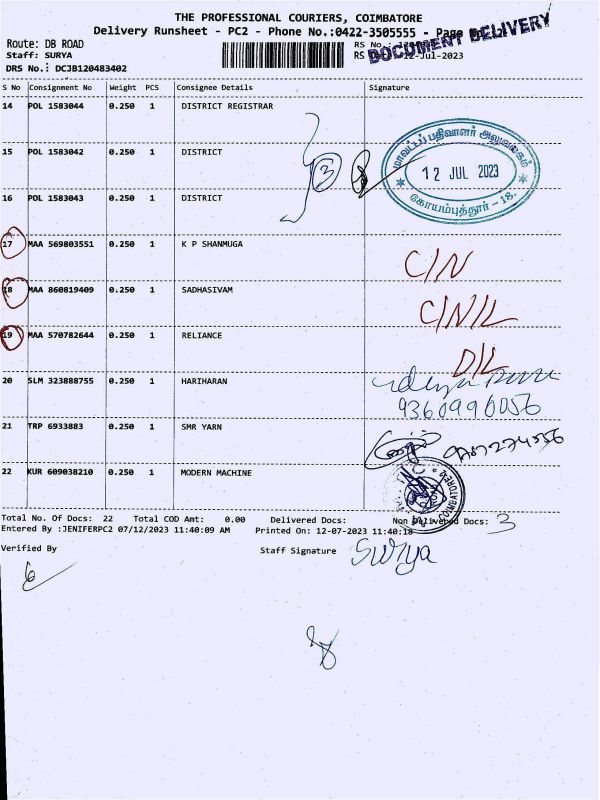 THE PROFESSIONAL COURIERS, COIMBATORE
Delivery Runsheet - PC2 - Phone No.:0422-3505555 - Page No.
DOCUMENT DELIVERY
Route: DB ROAD
RS No.:
Staff: SURYA
RS 12-Jul-2023
DRS No.: DCJB120483402
S No Consignment No Weight PCS Consignee Details Signature
14 POL 1583044 0.250 1 DISTRICT REGISTRAR
15 POL 1583042 0.250 1 DISTRICT
3
மாவட்டப் பதிவாளர் அலுவலகம்
12 JUL 2023
கோயம்புத்தூர் - 18.
16 POL 1583043 0.250 1 DISTRICT
17 MAA 569803551 0.250 1 K P SHANMUGA C/N
18 MAA 860819409 0.250 1 SADHASIVAM C/N/L
19 MAA 570782644 0.250 1 RELIANCE D/L
20 SLM 323888755 0.250 1 HARIHARAN
9360990056
21 TRP 6933883 0.250 1 SMR YARN
22 KUR 609038210 0.250 1 MODERN MACHINE
COIMBATORE
Total No. Of Docs: 22 Total COD Amt: 0.00 Delivered Docs: Non Delivered Docs: 3
Entered By :JENIFERPC2 07/12/2023 11:40:09 AM Printed On: 12-07-2023 11:40:18
Verified By Staff Signature Surya